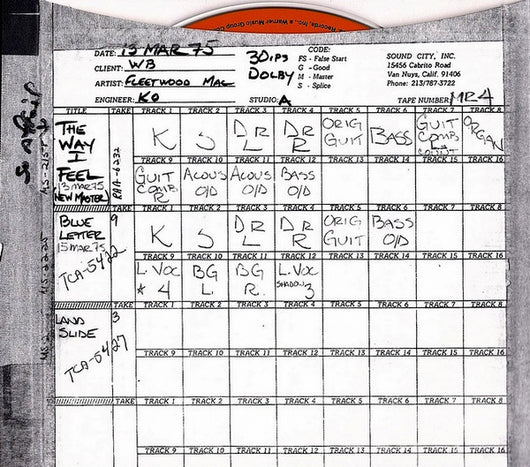 Records Inc., a Warner Music Group Co
DATE: 13 MAR 75
CLIENT: WB
ARTIST: FLEETWOOD MAC
ENGINEER: KO
STUDIO: A
30 IPS
DOLBY
CODE:
FS - False Start
G - Good
M - Master
S - Splice
SOUND CITY, INC.
15456 Cabrito Road
Van Nuys, Calif. 91406
Phone: 213/787-3722
TAPE NUMBER: MR 4
TITLE TAKE TRACK 1 TRACK 2 TRACK 3 TRACK 4 TRACK 5 TRACK 6 TRACK 7 TRACK 8
THE WAY I FEEL
13 MAR 75
NEW MASTER
K S DR L DR R ORIG GUIT BASS GUIT COMB. L ORGAN
TRACK 9 TRACK 10 TRACK 11 TRACK 12 TRACK 13 TRACK 14 TRACK 15 TRACK 16
GUIT COMB. R ACOUS O/D ACOUS O/D BASS O/D
TAKE TRACK 1 TRACK 2 TRACK 3 TRACK 4 TRACK 5 TRACK 6 TRACK 7 TRACK 8
BLUE LETTER
15 MAR 75
TCA-5422
9
K S DR L DR R ORIG GUIT BASS O/D
TRACK 9 TRACK 10 TRACK 11 TRACK 12 TRACK 13 TRACK 14 TRACK 15 TRACK 16
L. VOC * 4 BG L. BG R. L. VOC SHADOW 3
TAKE TRACK 1 TRACK 2 TRACK 3 TRACK 4 TRACK 5 TRACK 6 TRACK 7 TRACK 8
LAND SLIDE
TCA-5427
3
TRACK 9 TRACK 10 TRACK 11 TRACK 12 TRACK 13 TRACK 14 TRACK 15 TRACK 16
TAKE TRACK 1 TRACK 2 TRACK 3 TRACK 4 TRACK 5 TRACK 6 TRACK 7 TRACK 8
TRACK 9 TRACK 10 TRACK 11 TRACK 12 TRACK 13 TRACK 14 TRACK 15 TRACK 16